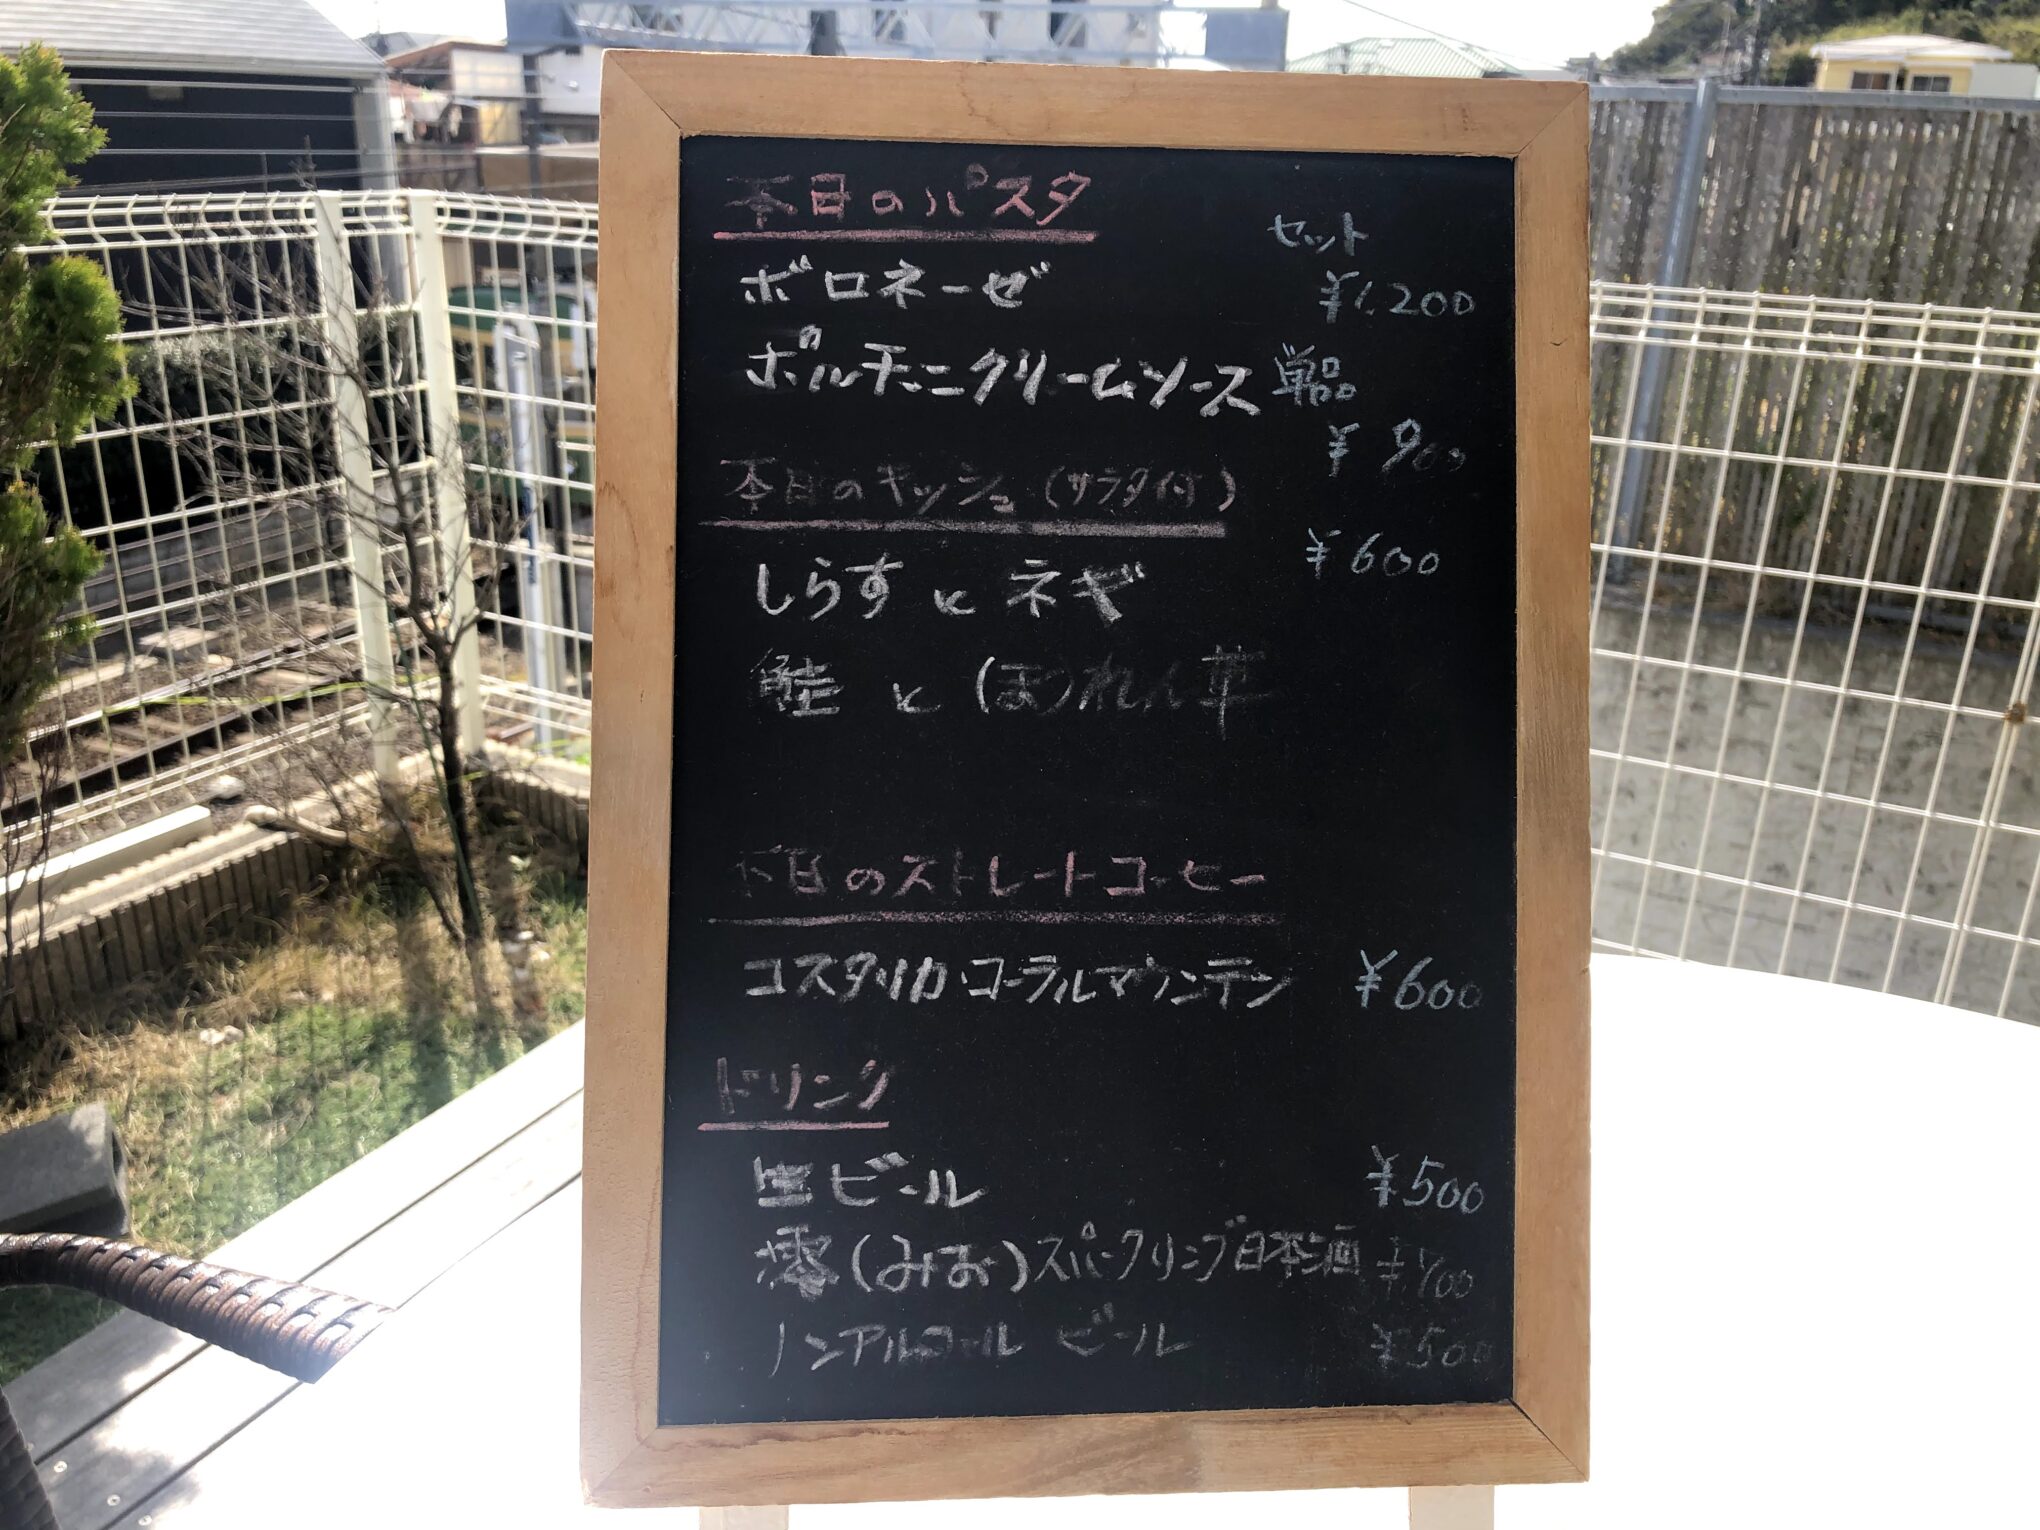 本日のパスタ
セット
ボロネーゼ ¥1,200
ポルチーニクリームソース 単品
¥900
本日のキッシュ(サラダ付)
¥600
しらすとネギ
鮭と(ほ)れん草
本日のストレートコーヒー
コスタリカ・コーラルマウンテン ¥600
ドリンク
生ビール ¥500
澪(みお)スパークリング日本酒 ¥700
ノンアルコールビール ¥500